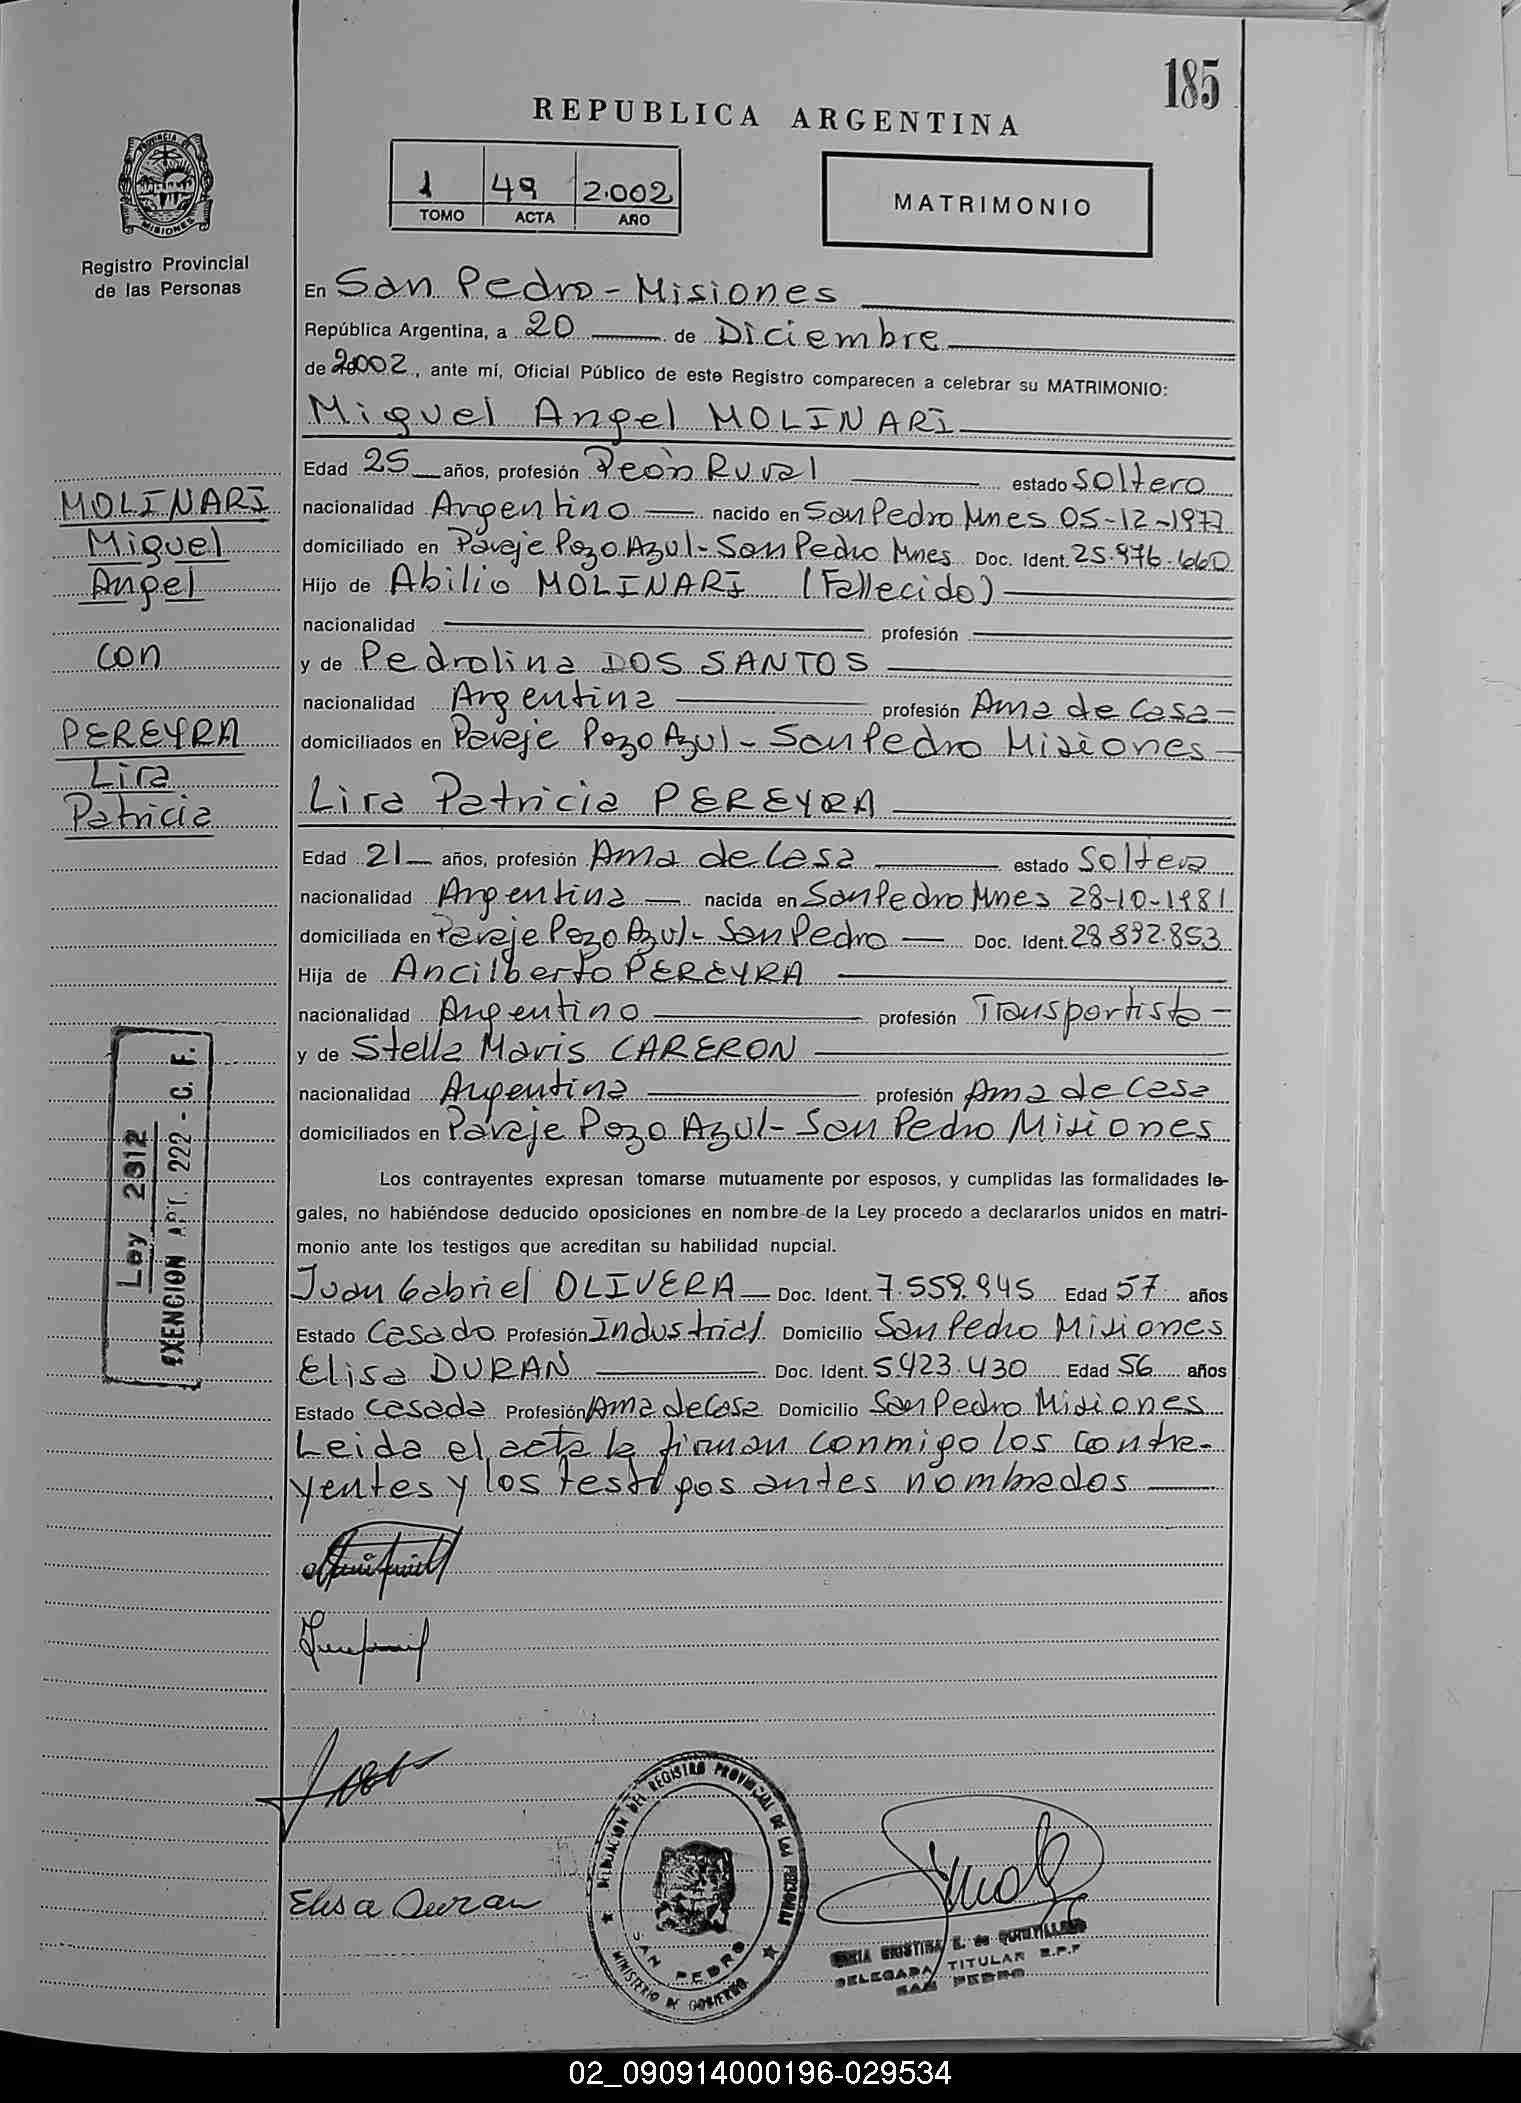 185
REPUBLICA ARGENTINA
1 49 2.002
TOMO ACTA AÑO
MATRIMONIO
PROVINCIA DE MISIONES
Registro Provincial
de las Personas
En San Pedro - Misiones
República Argentina, a 20 de Diciembre
de 2002, ante mí, Oficial Público de este Registro comparecen a celebrar su MATRIMONIO:
Miguel Angel MOLINARI
Edad 25 años, profesión Peón Rural estado Soltero
nacionalidad Argentino nacido en San Pedro Mnes 05-12-1977
domiciliado en Paraje Pozo Azul - San Pedro Mnes Doc. Ident. 25.976.660
Hijo de Abilio MOLINARI (Fallecido)
nacionalidad profesión
y de Pedrolina DOS SANTOS
nacionalidad Argentina profesión Ama de Casa -
domiciliados en Paraje Pozo Azul - San Pedro Misiones -
Lira Patricia PEREYRA
Edad 21 años, profesión Ama de Casa estado Soltera
nacionalidad Argentina nacida en San Pedro Mnes 28-10-1981
domiciliada en Paraje Pozo Azul - San Pedro Doc. Ident. 28.892.853
Hija de Ancilberto PEREYRA
nacionalidad Argentino profesión Transportista -
y de Stella Maris CARERON
nacionalidad Argentina profesión Ama de Casa
domiciliados en Paraje Pozo Azul - San Pedro Misiones
Los contrayentes expresan tomarse mutuamente por esposos, y cumplidas las formalidades le-
gales, no habiéndose deducido oposiciones en nombre de la Ley procedo a declararlos unidos en matri-
monio ante los testigos que acreditan su habilidad nupcial.
Juan Gabriel OLIVERA Doc. Ident. 7.559.945 Edad 57 años
Estado Casado Profesión Industrial Domicilio San Pedro Misiones
Elisa DURAN Doc. Ident. 5.423.430 Edad 56 años
Estado Casada Profesión Ama de Casa Domicilio San Pedro Misiones
Leida el acta la firman conmigo los contra-
yentes y los testigos antes nombrados
MOLINARI
Miguel
Angel
con
PEREYRA
Lira
Patricia
Ley 2312
EXENCION ART. 222 - C. F.
Elisa Duran
DELEGACION DEL REGISTRO PROVINCIAL DE LAS PERSONAS
SAN PEDRO
MINISTERIO DE GOBIERNO
CRISTINA E. de
DELEGADA TITULAR R.P.P
SAN PEDRO
02_090914000196-029534